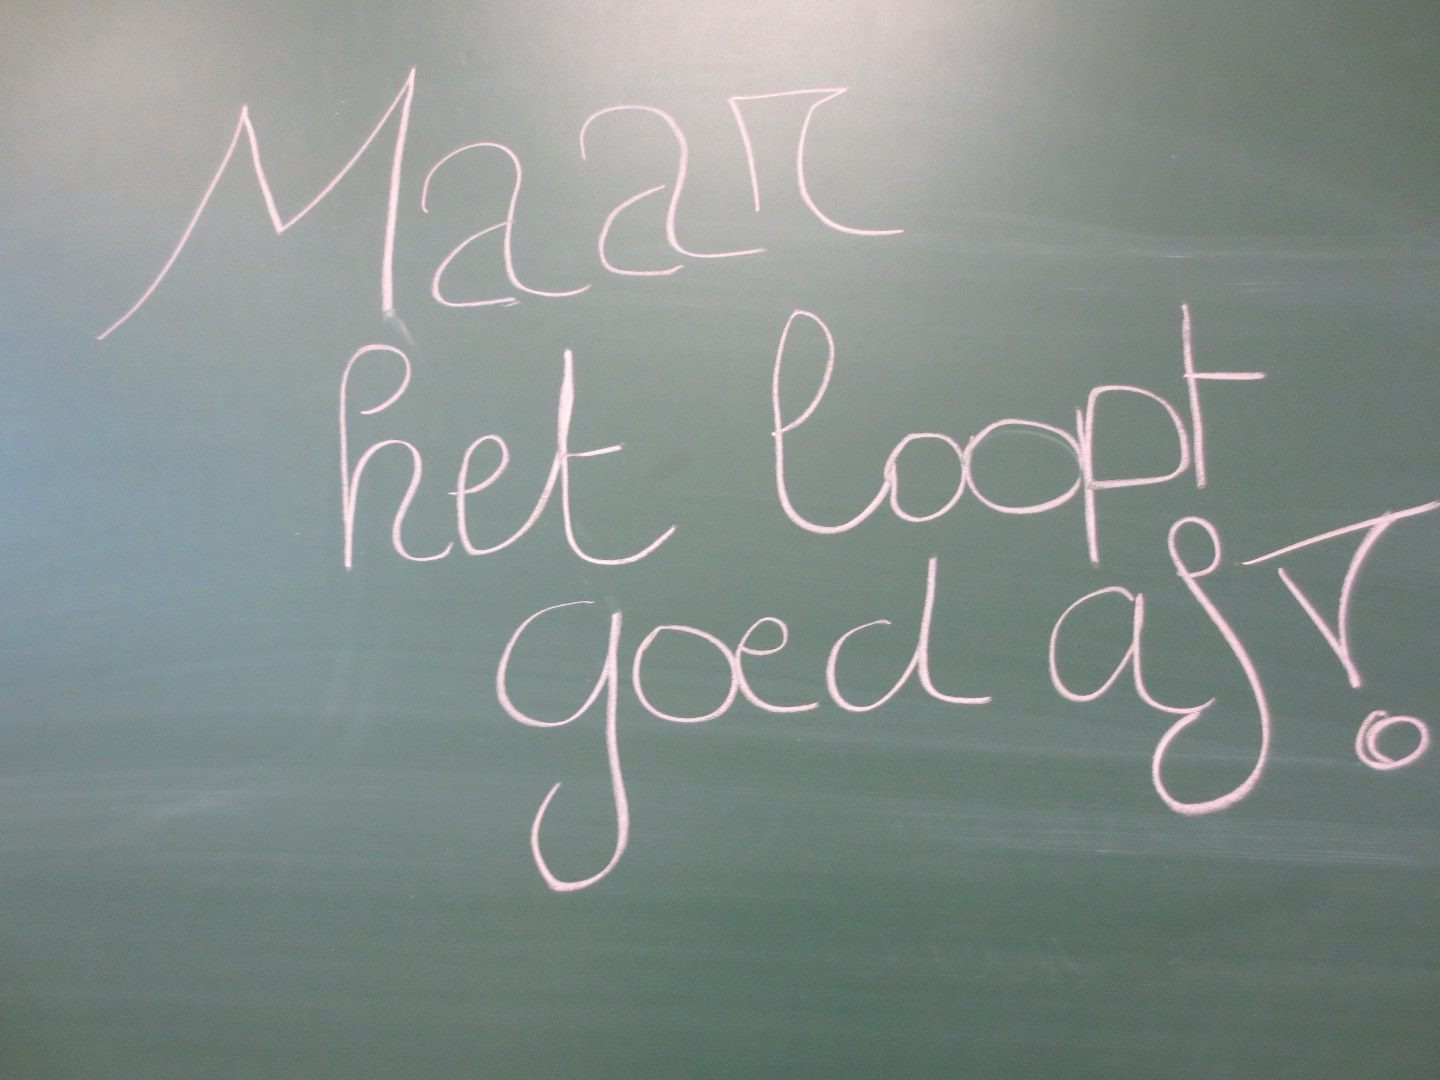 Maar
het loopt
goed af!